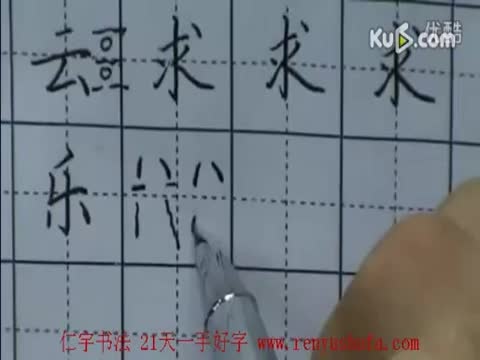 Ku6.com 优酷
求 求 求
乐
仁宇书法 21天一手好字 www.renyushufa.com